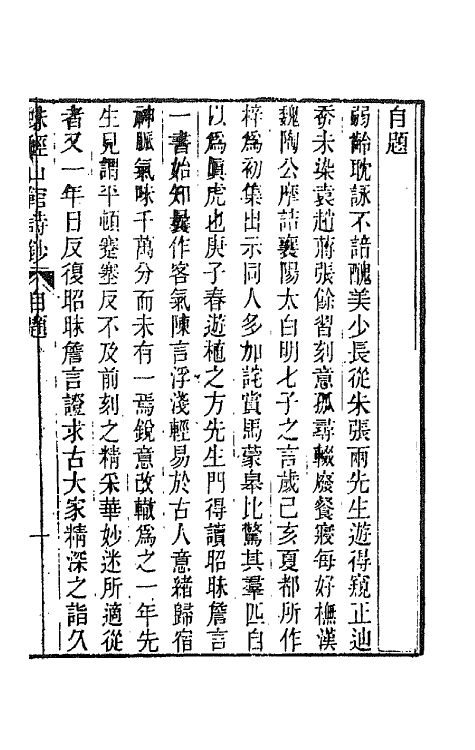 自題
弱齡耽詠不諳醜美少長從朱張兩先生遊得窺正廸
忝未染袁趙蔣張餘習刻意孤尋輟廢餐寢每好橅漢
魏陶公摩詰襄陽太白明七子之言歲己亥夏都所作
梓爲初集出示同人多加詫賞馬蒙皋比驚其羣匹自
以爲眞虎也庚子春遊植之方先生門得讀昭昧詹言
一書始知曩作客氣陳言浮淺輕易於古人意緒歸宿
神脈氣味千萬分而未有一焉銳意改轍爲之一年先
生見謂平頓蹇塞反不及前刻之精采華妙迷所適從
者又一年日反復昭昧詹言證求古大家精深之詣久
味經山館詩鈔 自題 一